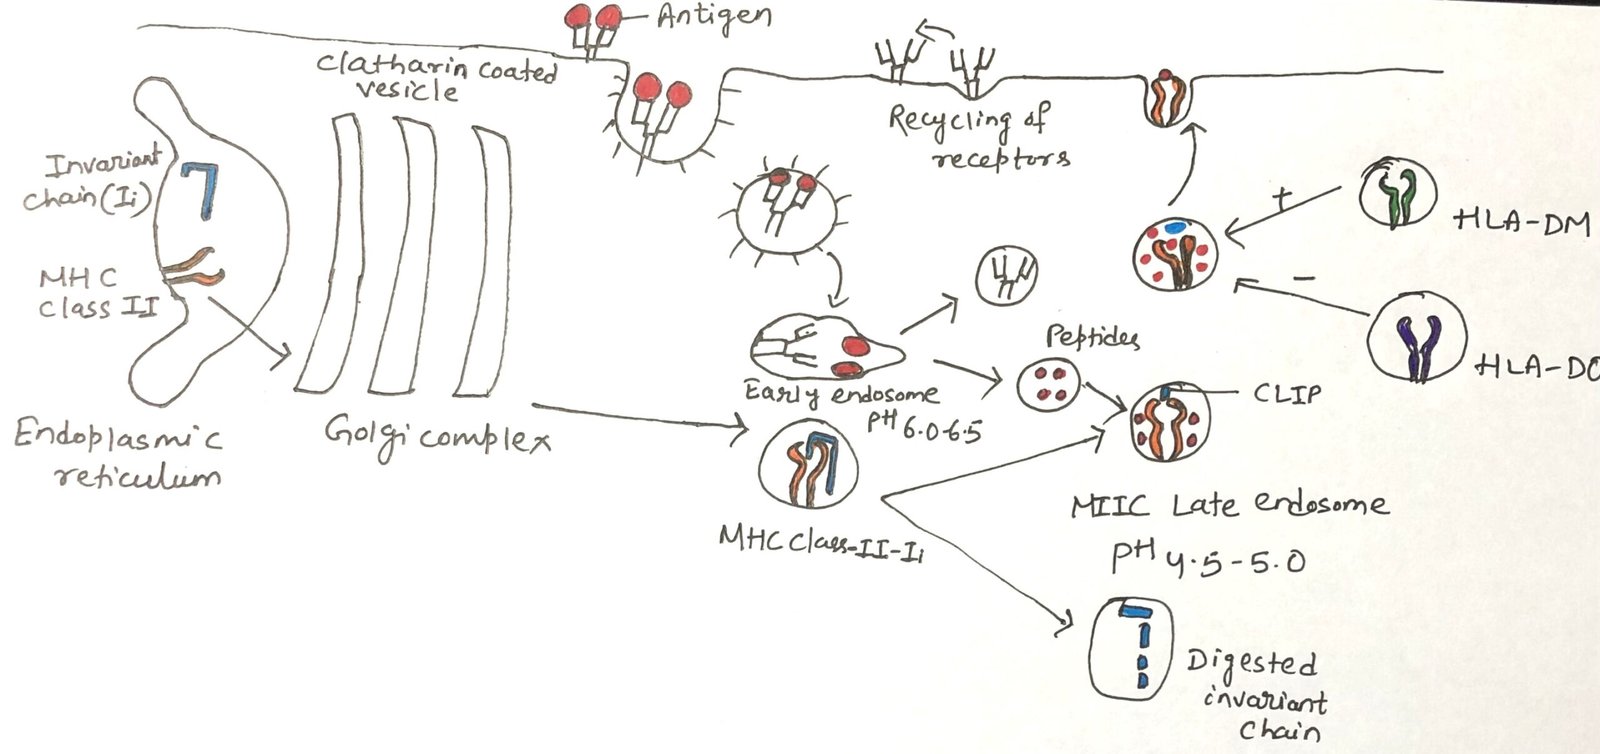 Antigen
Clatharin coated
vesicle
Invariant
chain (Ii)
MHC
class II
Endoplasmic
reticulum
Golgi complex
Recycling of
receptors
HLA-DM
+
-
HLA-DO
Peptides
Early endosome
PH 6.0-6.5
CLIP
MHC Class-II-Ii
MIIC Late endosome
PH 4.5-5.0
Digested
invariant
chain